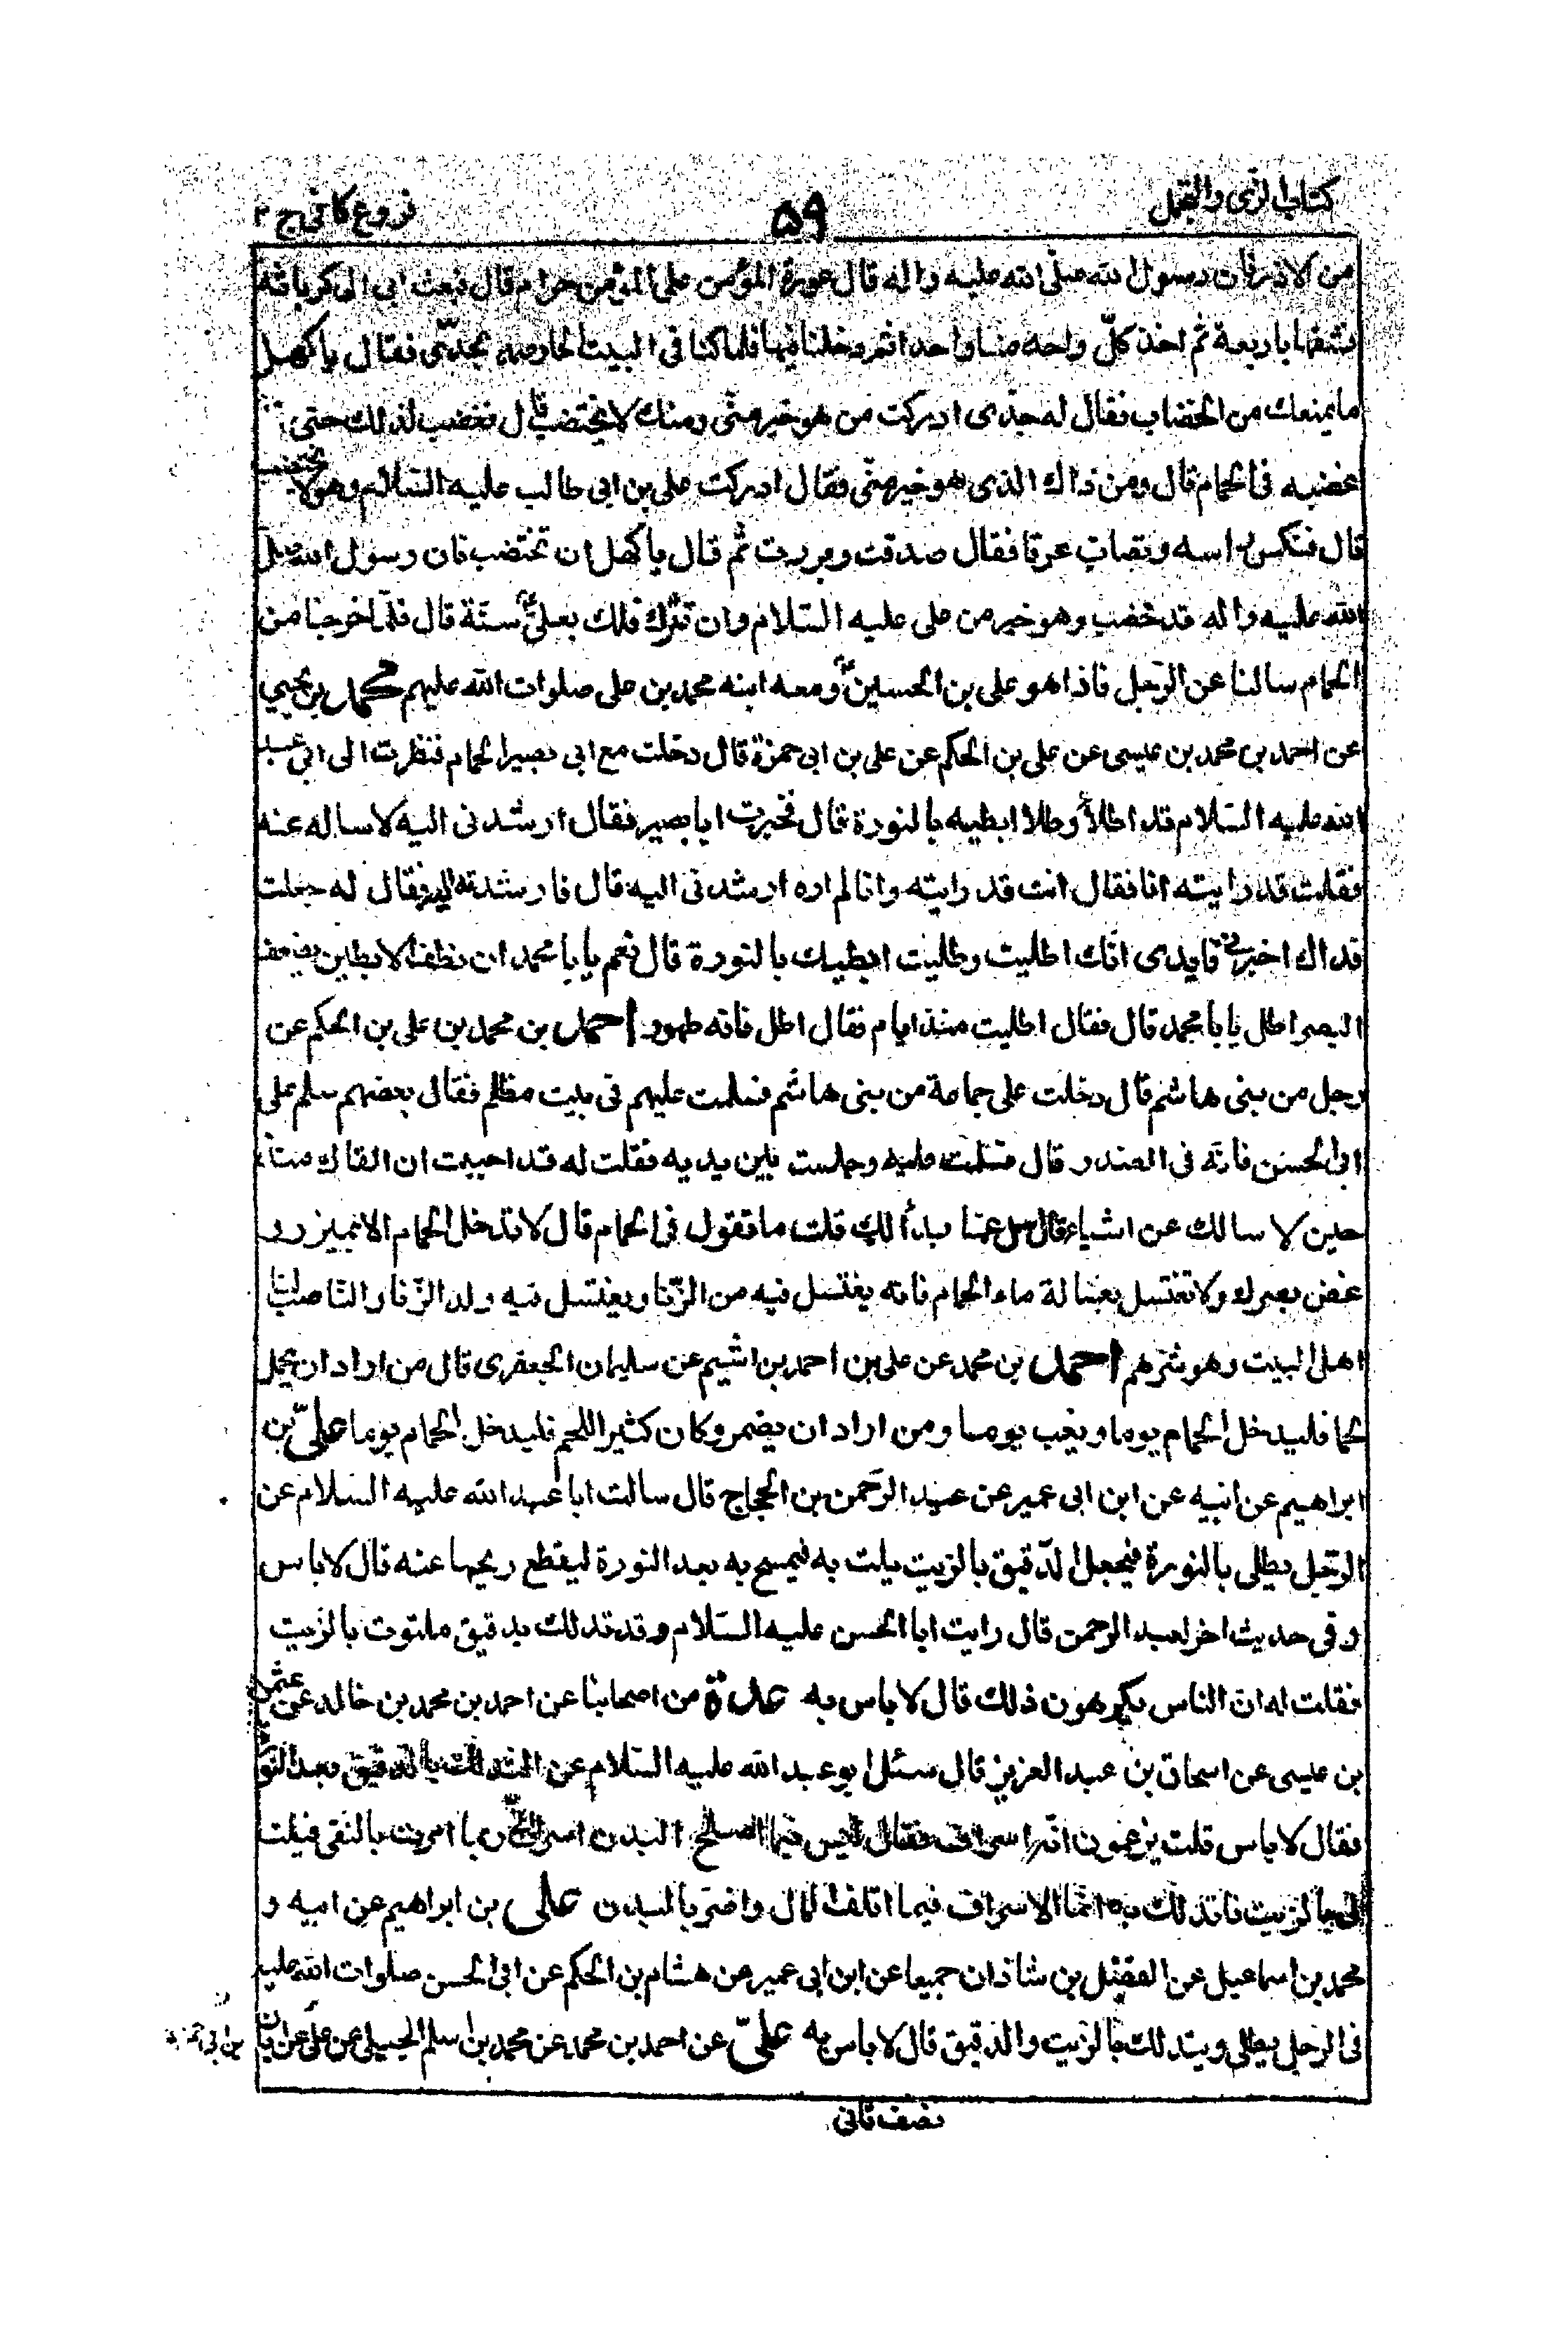 كتاب الزى والتجمل
۵۹
فروع كافى ج ۲
من الازر فان رسول الله صلّى الله عليه واله قال عورة المؤمن على المؤمن حرام قال فبعث ابى الى كرباسة
فشقها باربعة ثم اخذ كلّ واحد منا واحدا ثم دخلنا فيها فلما كنا فى البيت الحار صمد بجدّى فقال يا كهل
ما يمنعك من الخضاب فقال له جدّى ادركت من هو خير منّى ومنك لا يختضب قال فغضب لذلك حتى
غضبه فى الحمام قال ومن ذاك الذى هو خير منّى فقال ادركت على بن ابى طالب عليه السّلام وهو لا يختضب
قال فنكس راسه وتصابّ عرقا فقال صدقت وبررت ثم قال يا كهل ان تختضب فان رسول الله صلّى
الله عليه واله قد خضب وهو خير من على عليه السّلام وان تترك فلك بعلىّ سنّة قال فلمّا خرجنا من
الحمام سالنا عن الرّجل فاذا هو على بن الحسين ومعه ابنه محمد بن على صلوات الله عليهم محمد بن يحيى
عن احمد بن محمد بن عيسى عن على بن الحكم عن على بن ابى حمزة قال دخلت مع ابى بصير الحمام فنظرت الى ابى عبد
الله عليه السّلام قد اطلا وطلا ابطيه بالنورة قال فخبرت ابا بصير فقال ارشدنى اليه لاساله عنه
فقلت قد رايته انا فقال انت قد رايته وانا لم اره ارشدنى اليه قال فارشدته اليه فقال له جعلت
فداك اخبرنى قايدى انّك اطليت وطليت ابطيك بالنورة قال نعم يا با محمد ان نظف الابطين يضعف
البصر اطل يا با محمد قال فقال اطليت منذ ايام فقال اطل فانه طهور احمد بن محمد بن على بن الحكم عن
رجل من بنى هاشم قال دخلت على جماعة من بنى هاشم فسلمت عليهم فى بيت مظلم فقال بعضهم سلم على
ابى الحسن فانّه فى الصدر قال فسلّمت عليه وجلست بين يديه فقلت له قد احببت ان القاك منذ
حين لاسالك عن اشياء قال سل عمّا بدا لك قلت ما تقول فى الحمام قال لا تدخل الحمام الا بميزر و
غض بصرك ولا تغتسل بغسالة ماء الحمام فانه يغتسل فيه من الزّنا ويغتسل فيه ولد الزّنا والنّاصب لنا
اهل البيت وهو شرّهم احمد بن محمد عن على بن احمد بن اشيم عن سليمان الجعفرى قال من اراد ان يحمل
لحما فليدخل الحمام يوما ويغب يوما ومن اراد ان يضمر وكان كثير اللحم فليدخل الحمام يوما علىّ بن
ابراهيم عن ابيه عن ابن ابى عمير عن عبد الرّحمن بن الحجاج قال سالت ابا عبد الله عليه السّلام عن
الرّجل يطلى بالنورة فيجعل الدّقيق بالزيت يلت به فيمسح به بعد النورة ليقطع ريحها عنه قال لا باس
وفى حديث اخر لعبد الرحمن قال رايت ابا الحسن عليه السّلام وقد تدلك بدقيق ملتوت بالزيت
فقلت له ان الناس يكرهون ذلك قال لا باس به عدة من اصحابنا عن احمد بن محمد بن خالد عن عثمن
بن عيسى عن اسحاق بن عبد العزيز قال سئل ابو عبد الله عليه السّلام عن التدلك بالدقيق بعد النورة
فقال لا باس قلت يزعمون انّه اسراف فقال ليس فيما اصلح البدن اسراف انى ربا امرت بالنقى فيلت
لى بالزيت فاتدلك به انّما الاسراف فيما اتلف المال واضرّ بالبدن على بن ابراهيم عن ابيه و
محمد بن اسماعيل عن الفضل بن شاذان جميعا عن ابن ابى عمير عن هشام بن الحكم عن ابى الحسن صلوات الله عليه
فى الرجل يطلى ويتدلك بالزيت والدقيق قال لا باس به علىّ عن احمد بن محمد عن محمد بن اسلم الجبلى عن على عن ابان
نصف ثانى